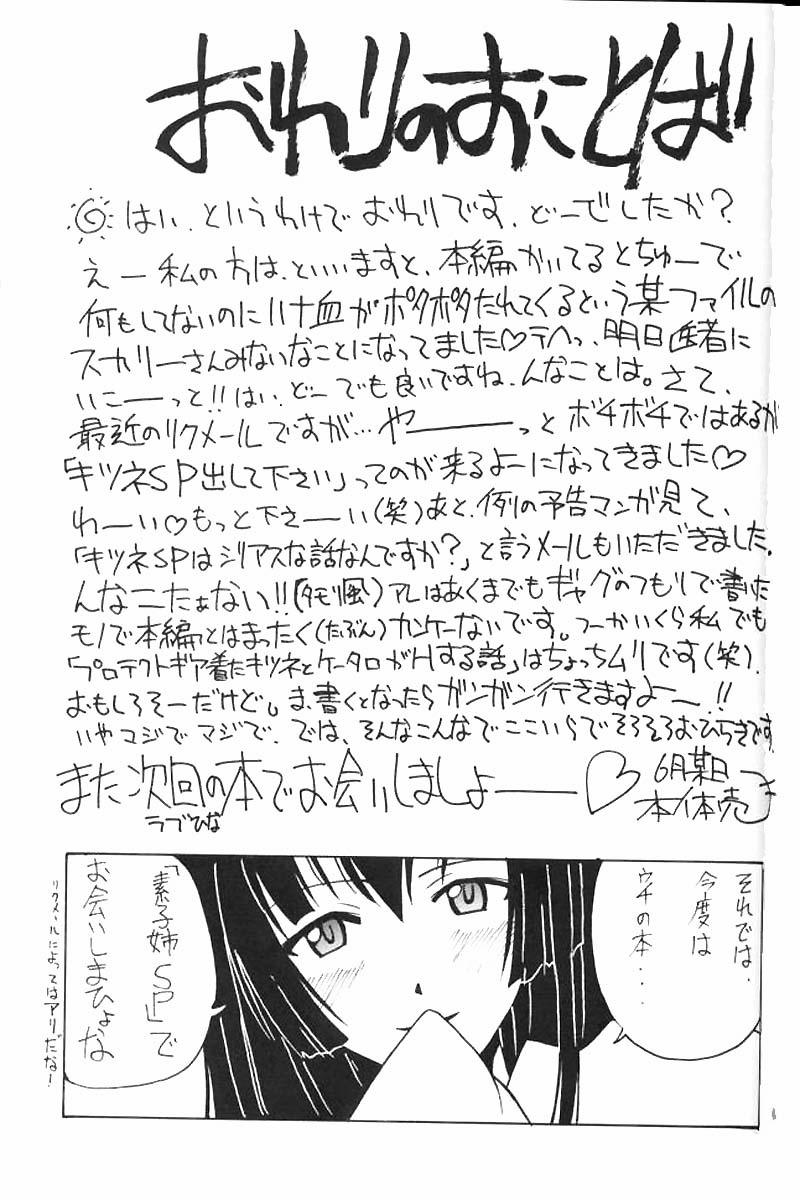 おわりのおことば
はい、というわけでおわりです、どーでしたか？
えー私の方は、といいますと、本編かいてるとちゅーで
何もしてないのにハナ血がポタポタたれてくるという某ファイルの
スカリーさんみないなことになってました♡テヘっ、明日医者に
いこーーっと!!はい、どーでも良いですね、んなことは。さて、
最近のリクメールですが…やーーーっとボチボチではあるが
「キツネSP出して下さい」ってのが来るよーになってきました♡
わーい♡もっと下さーい(笑)あと、例の予告マンガ見て、
「キツネSPはシリアスな話なんですか？」と言うメールもいただきました。
んなこたぁない!!(タモリ風)アレはあくまでもギャグのつもりで書いた
モノで本編とはまったく(たぶん)カンケーないです。つーかいくら私でも
「プロテクトギア着たキツネとケータロがHする話」はちょっちムリです(笑)。
おもしろそーだけど。ま、書くとなったらガンガン行きますよー!!
いやマジでマジで。では、そんなこんなでここいらでそろそろおひらきです
また次回の本でお会いしましょーーー♡
ラブひな
6月某日
本体売
それでは、
今度は
ウチの本・・・
「素子姉SP」で
お会いしまひょな
リクメールによってはアリだな！